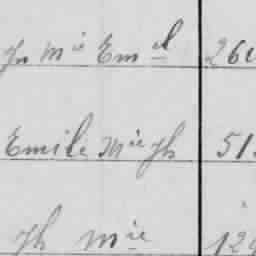 Jh Mie Emel 260
Emile Mie Jh 51
Jh Mie 129